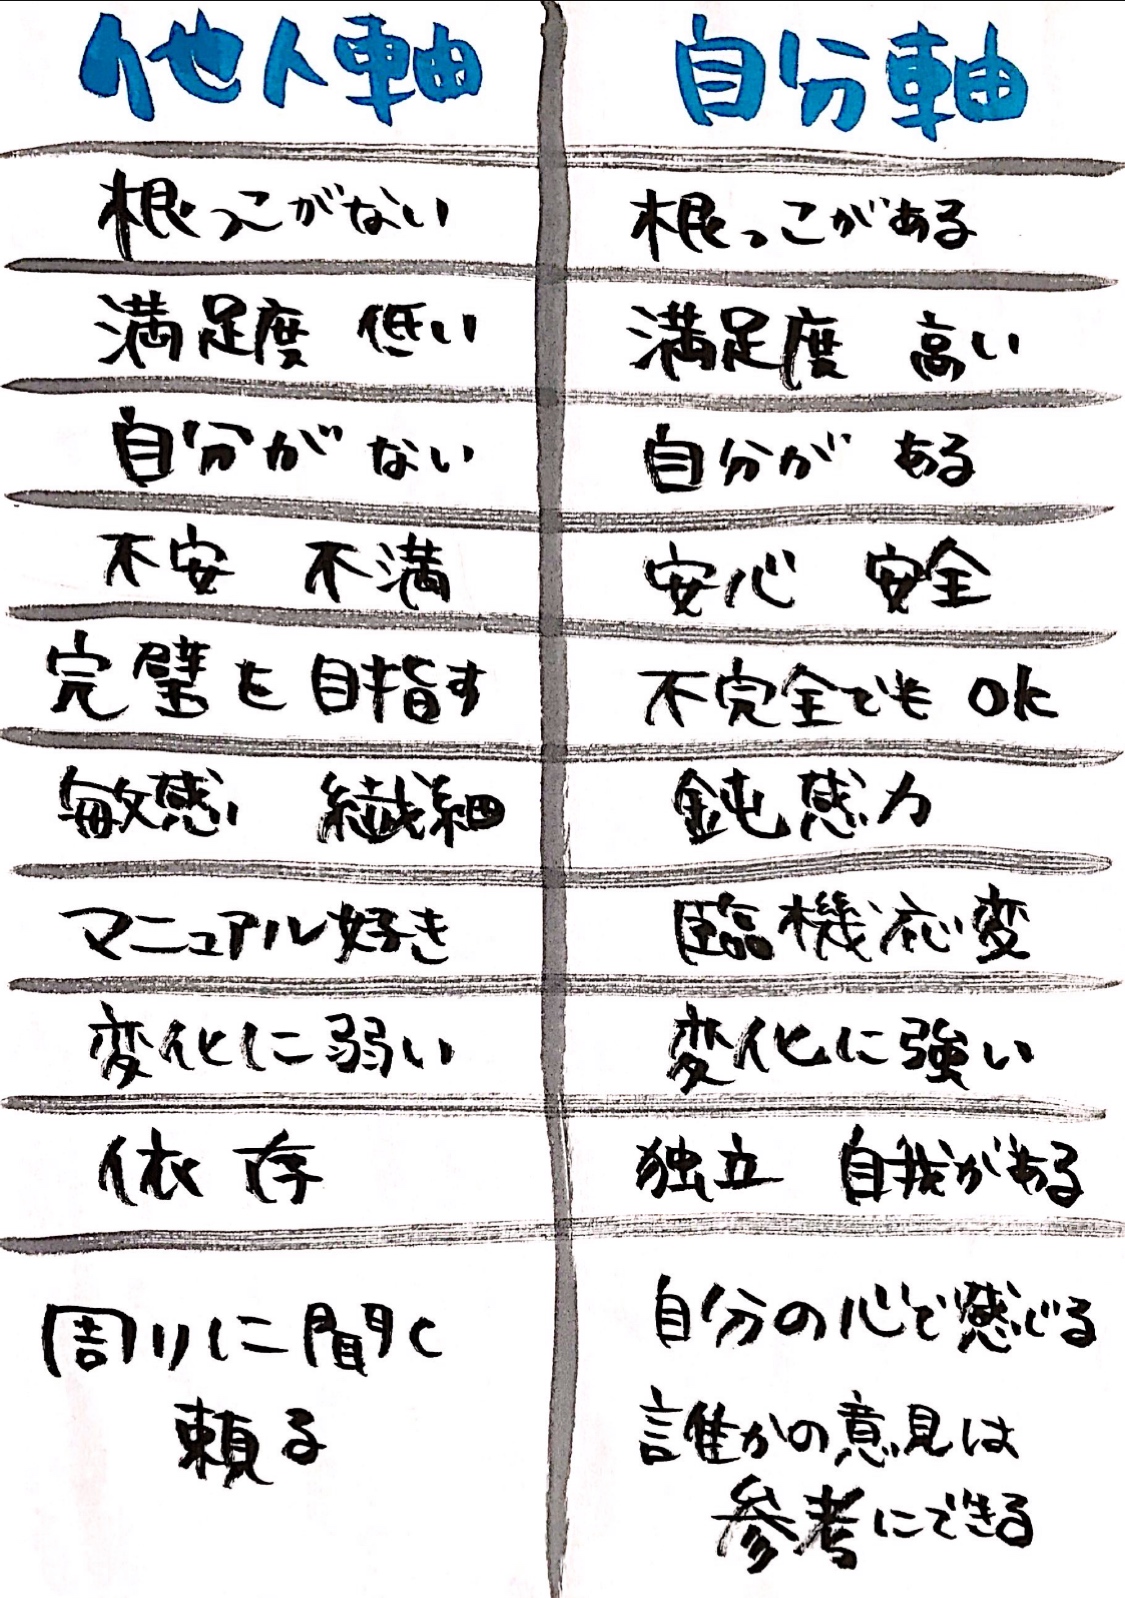 他人軸 自分軸
根っこがない 根っこがある
満足度 低い 満足度 高い
自分が ない 自分が ある
不安 不満 安心 安全
完璧を目指す 不完全でも OK
敏感 繊細 鈍感力
マニュアル好き 臨機応変
変化に弱い 変化に強い
依存 独立 自我がある
周りに聞く 自分の心で感じる
頼る 誰かの意見は
参考にできる